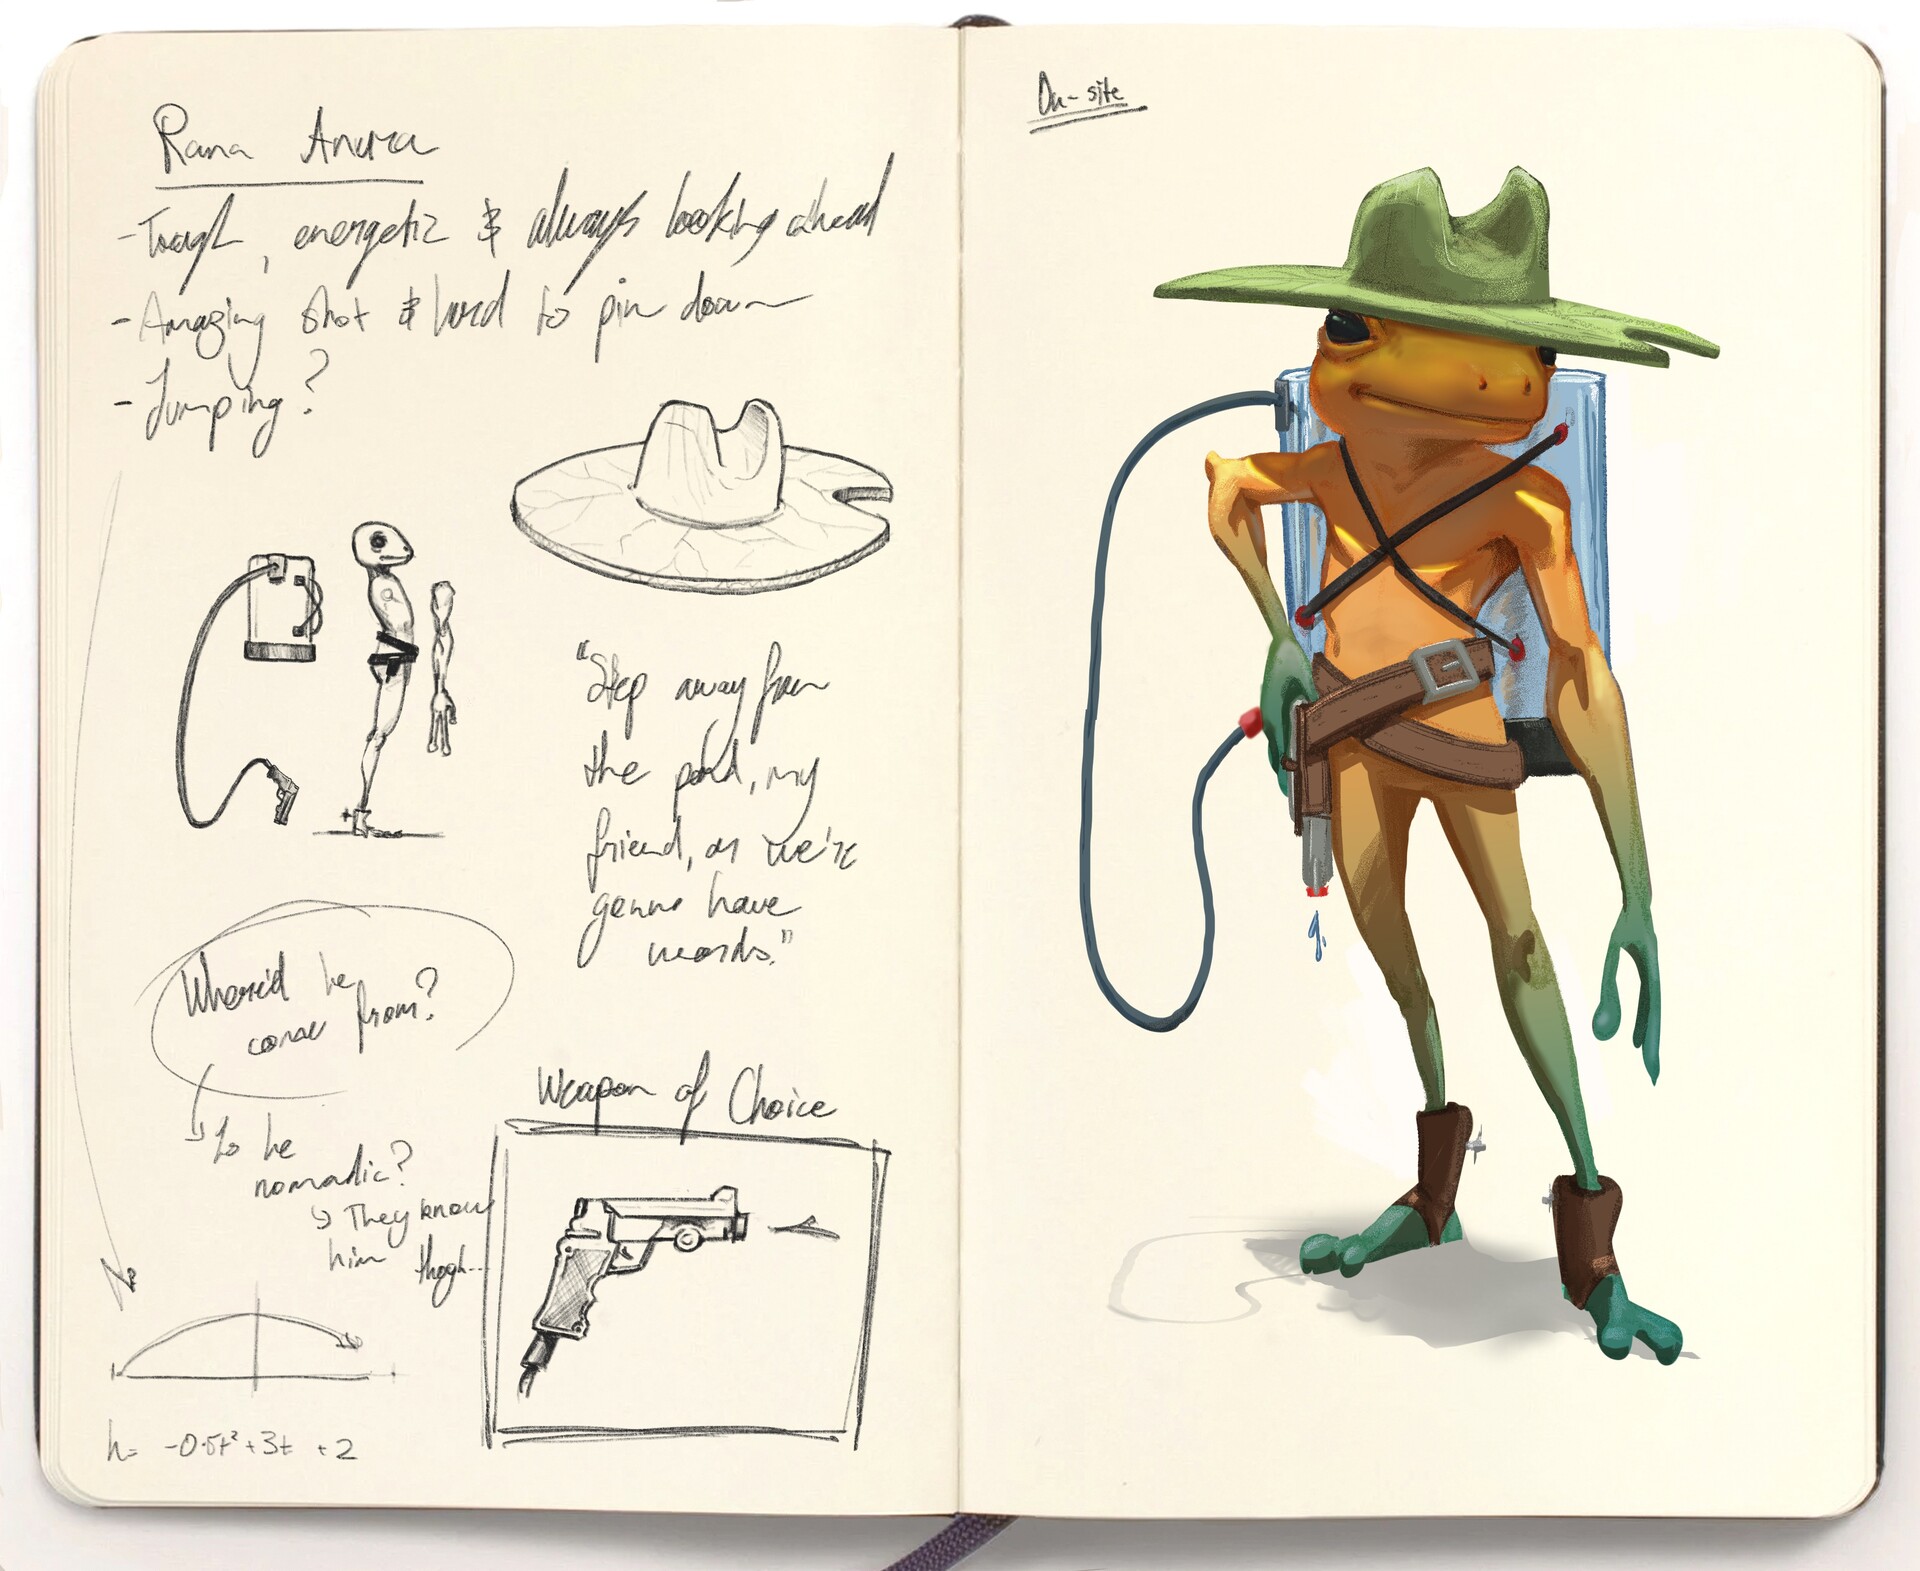 Rana Anura
-Tough, energetic & always looking ahead
-Amazing shot & hard to pin down
-Jumping?
"Step away from
the pond, my
friend, or we're
gonna have
words."
Where'd he
come from?
Is he
nomadic?
They know
him thogh...
Weapon of Choice
h= -0.5t²+3t +2
On-site